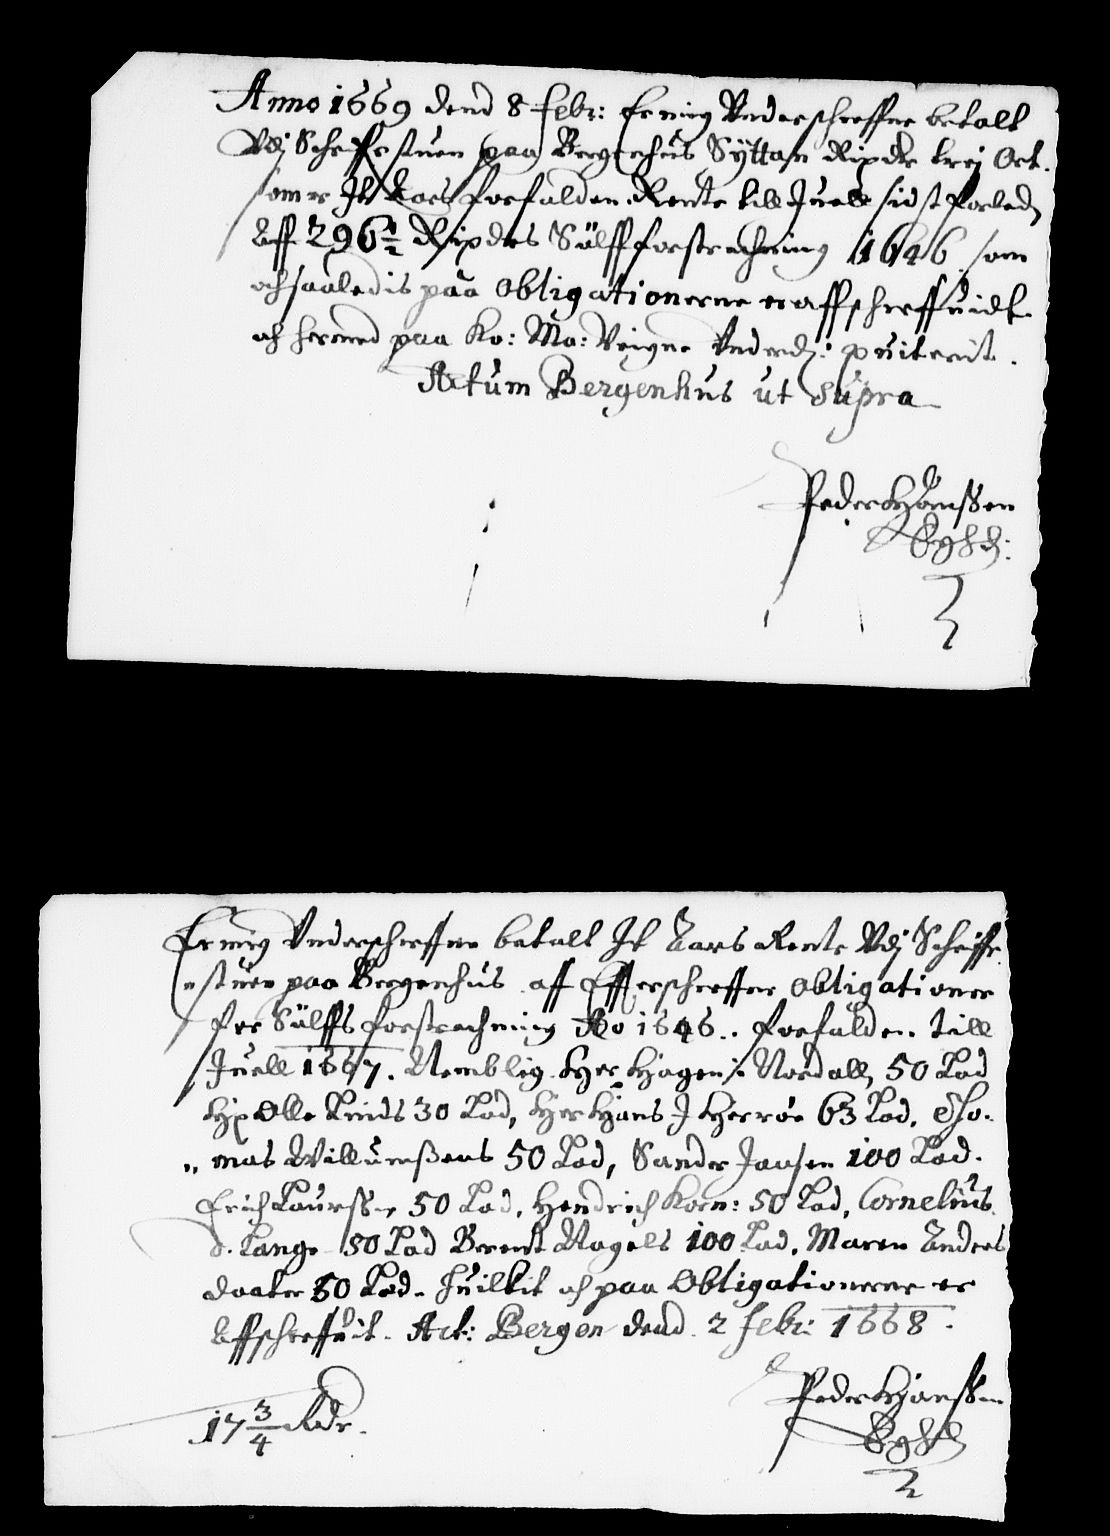 Anno 1669 dend 8 Febr: Er mig Underschreffne betalt
Udj Schriffstuen paa Bergenhus Sÿtten Rixdr trej Ort.
som er Jt Aars forfalden Rente till Juell sidst forleden
Aff 296½ Rixdrs Sülff forstrechning 1646 som
och saaledis paa Obligationerne er affschreffuidt
och hermed paa Ko: Ma: Veigne Underd: quiterit.
Actum Bergenhus ut Supra
Peder Hanssen
Er mig Underschreffne betalt Jt Aars Rente Udj Schriffe
"stuen paa Bergenhus aff Effterschreffne Obligationer
for Sülffs forstrechning Ao 1646. forfalden till
Juell 1667. Nemblig Her Hagen i Nordall, 50 Lod
Hr Olle Linds 30 Lod, Her Hans J Herröe 63 Lod, Tho-
"mas Willumßens 50 Lod, Sander Jansen 100 Lod.
Erich Laurss 50 Lod, Hendrich Korn: 50 Lod, Cornelius
d. Lange 50 Lod Berent Nagels 100 Lod, Maren Anders
daater 50 Lod. huilkit och paa Obligationerne er
Affschreffuit. Act: Bergen dend 2 Febr: 1668.
Peder Hanssen
17 3/4 Rdr.